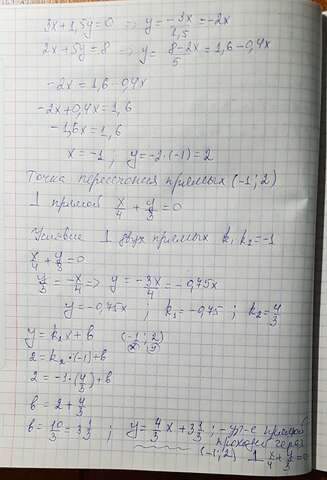 3x+1,5y=0 ⇒ y=-3x/1,5=-2x
2x+5y=8 ⇒ y=(8-2x)/5=1,6-0,4x
-2x=1,6-0,4x
-2x+0,4x=1,6
-1,6x=1,6
x=-1; y=-2·(-1)=2
Точка пересечения прямых (-1;2)
⊥ прямой x/4+y/3=0
Условие ⊥ двух прямых k₁k₂=-1
x/4+y/3=0
y/3=-x/4 ⇒ y=-3x/4=-0,75x
y=-0,75x; k₁=-0,75; k₂=4/3
y=k₂x+b (-1;2)
x y
2=k₂·(-1)+b
2=-1·(4/3)+b
b=2+4/3
b=10/3=3 1/3; y=4/3x+3 1/3; -ур-е прямой
проходящ через
(-1;2) ⊥ x/4+y/3=0